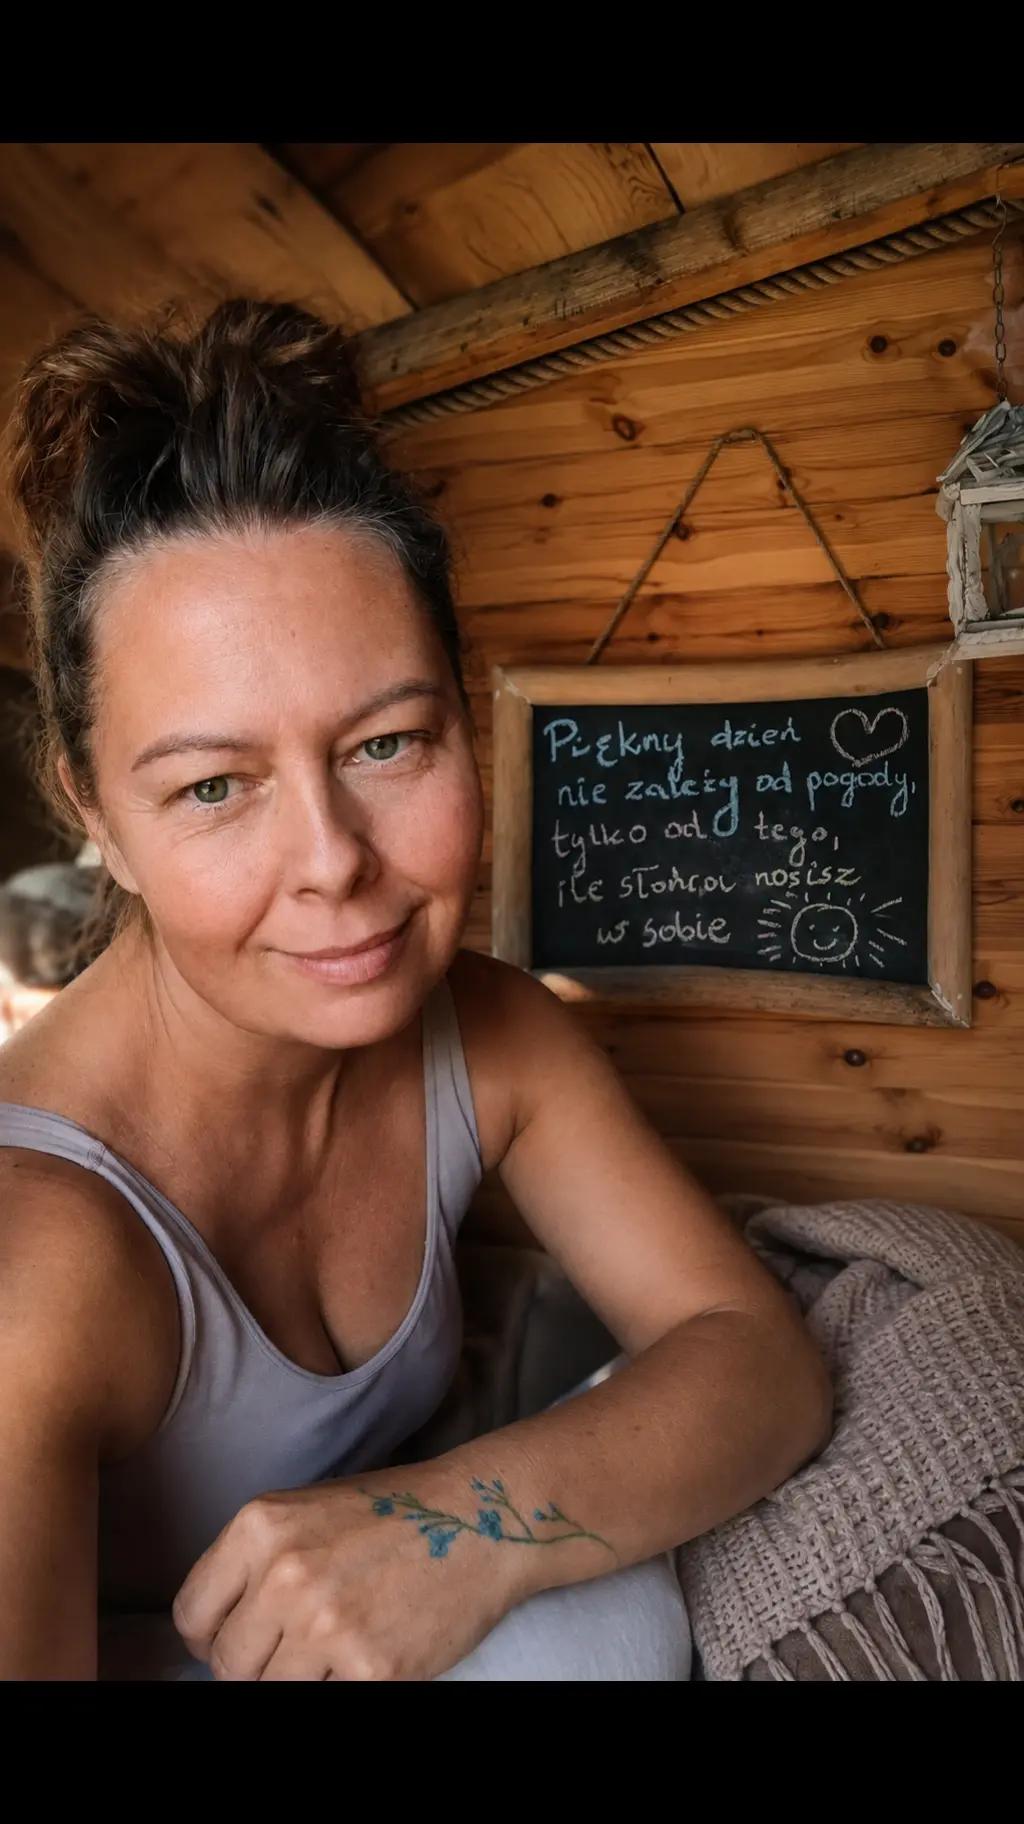 Piękny dzień
nie zależy od pogody,
tylko od tego,
ile słońca nosisz
w sobie